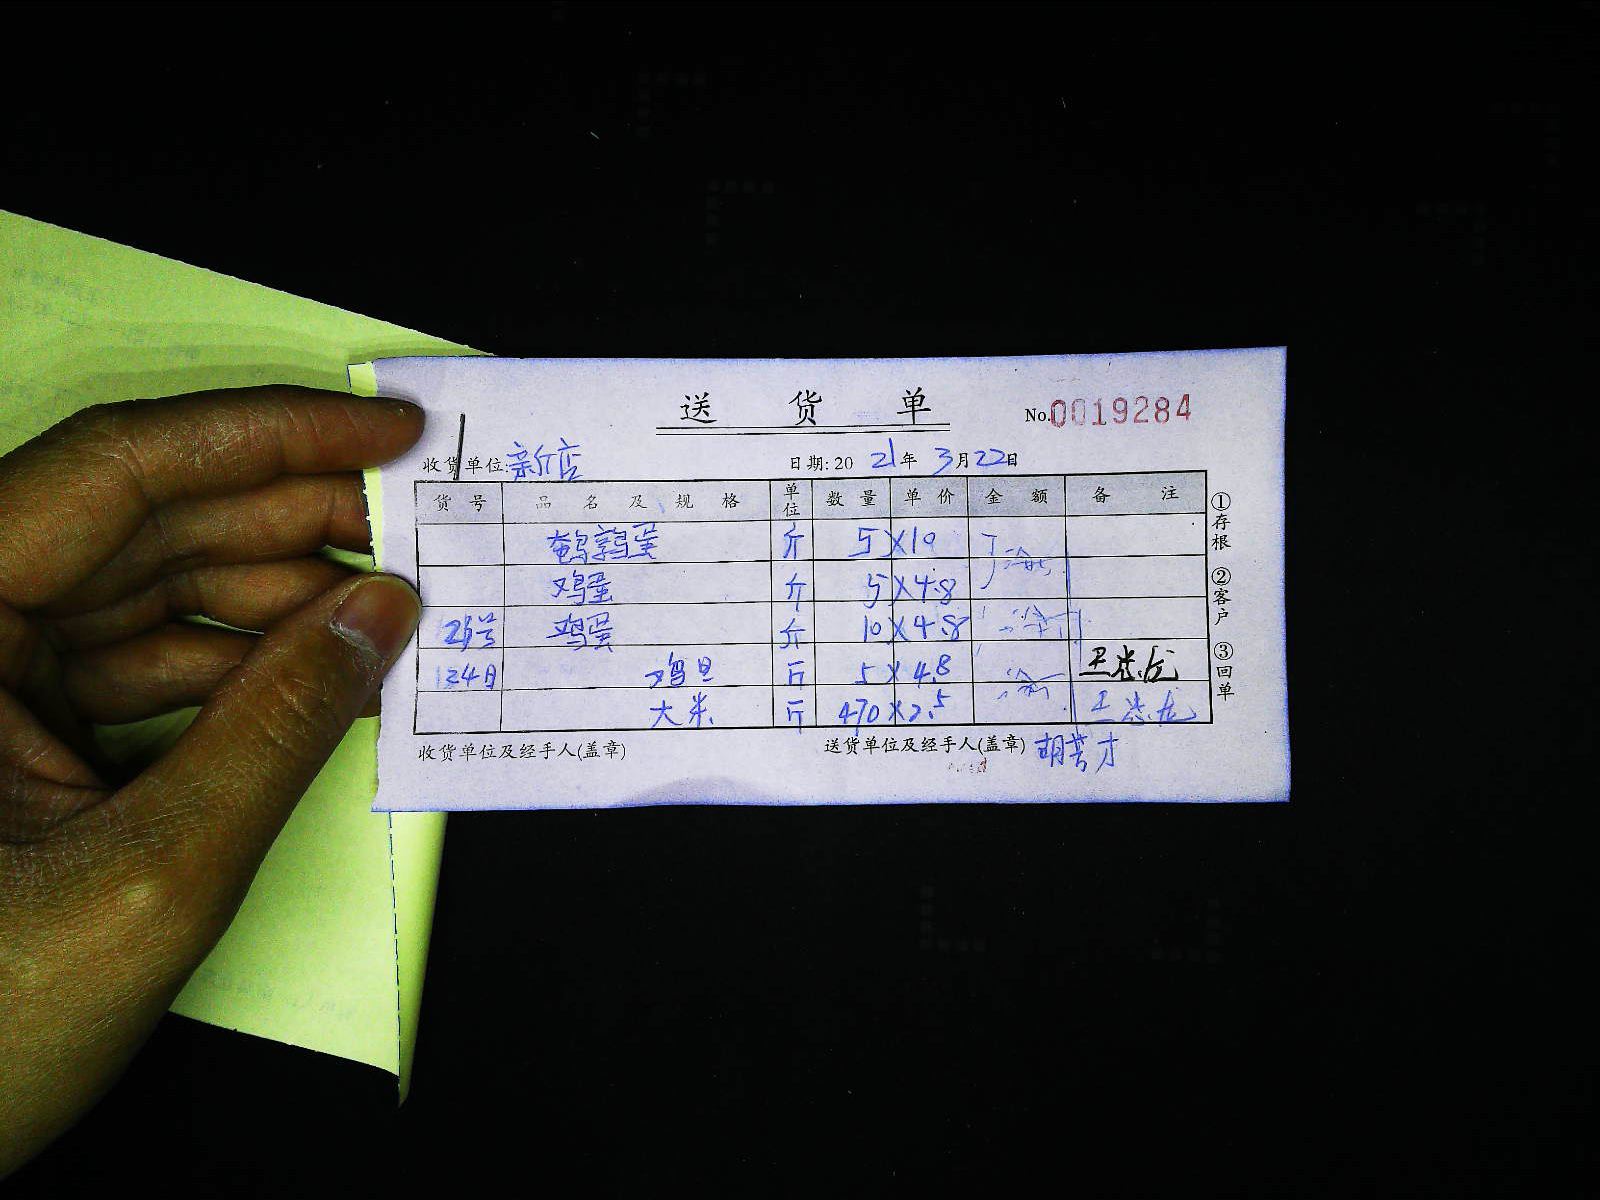 送货单
No.0019284
收货单位:新店 日期:2021年3月22日
货号 品名及规格 单位 数量 单价 金额 备注
鹌鹑蛋 斤 5×10
鸡蛋 斤 5×4.8
鸡蛋 斤 10×4.8
鸡旦 斤 5×4.8
大米 斤 470×2.5
收货单位及经手人(盖章) 送货单位及经手人(盖章)
①存根 ②客户 ③回单